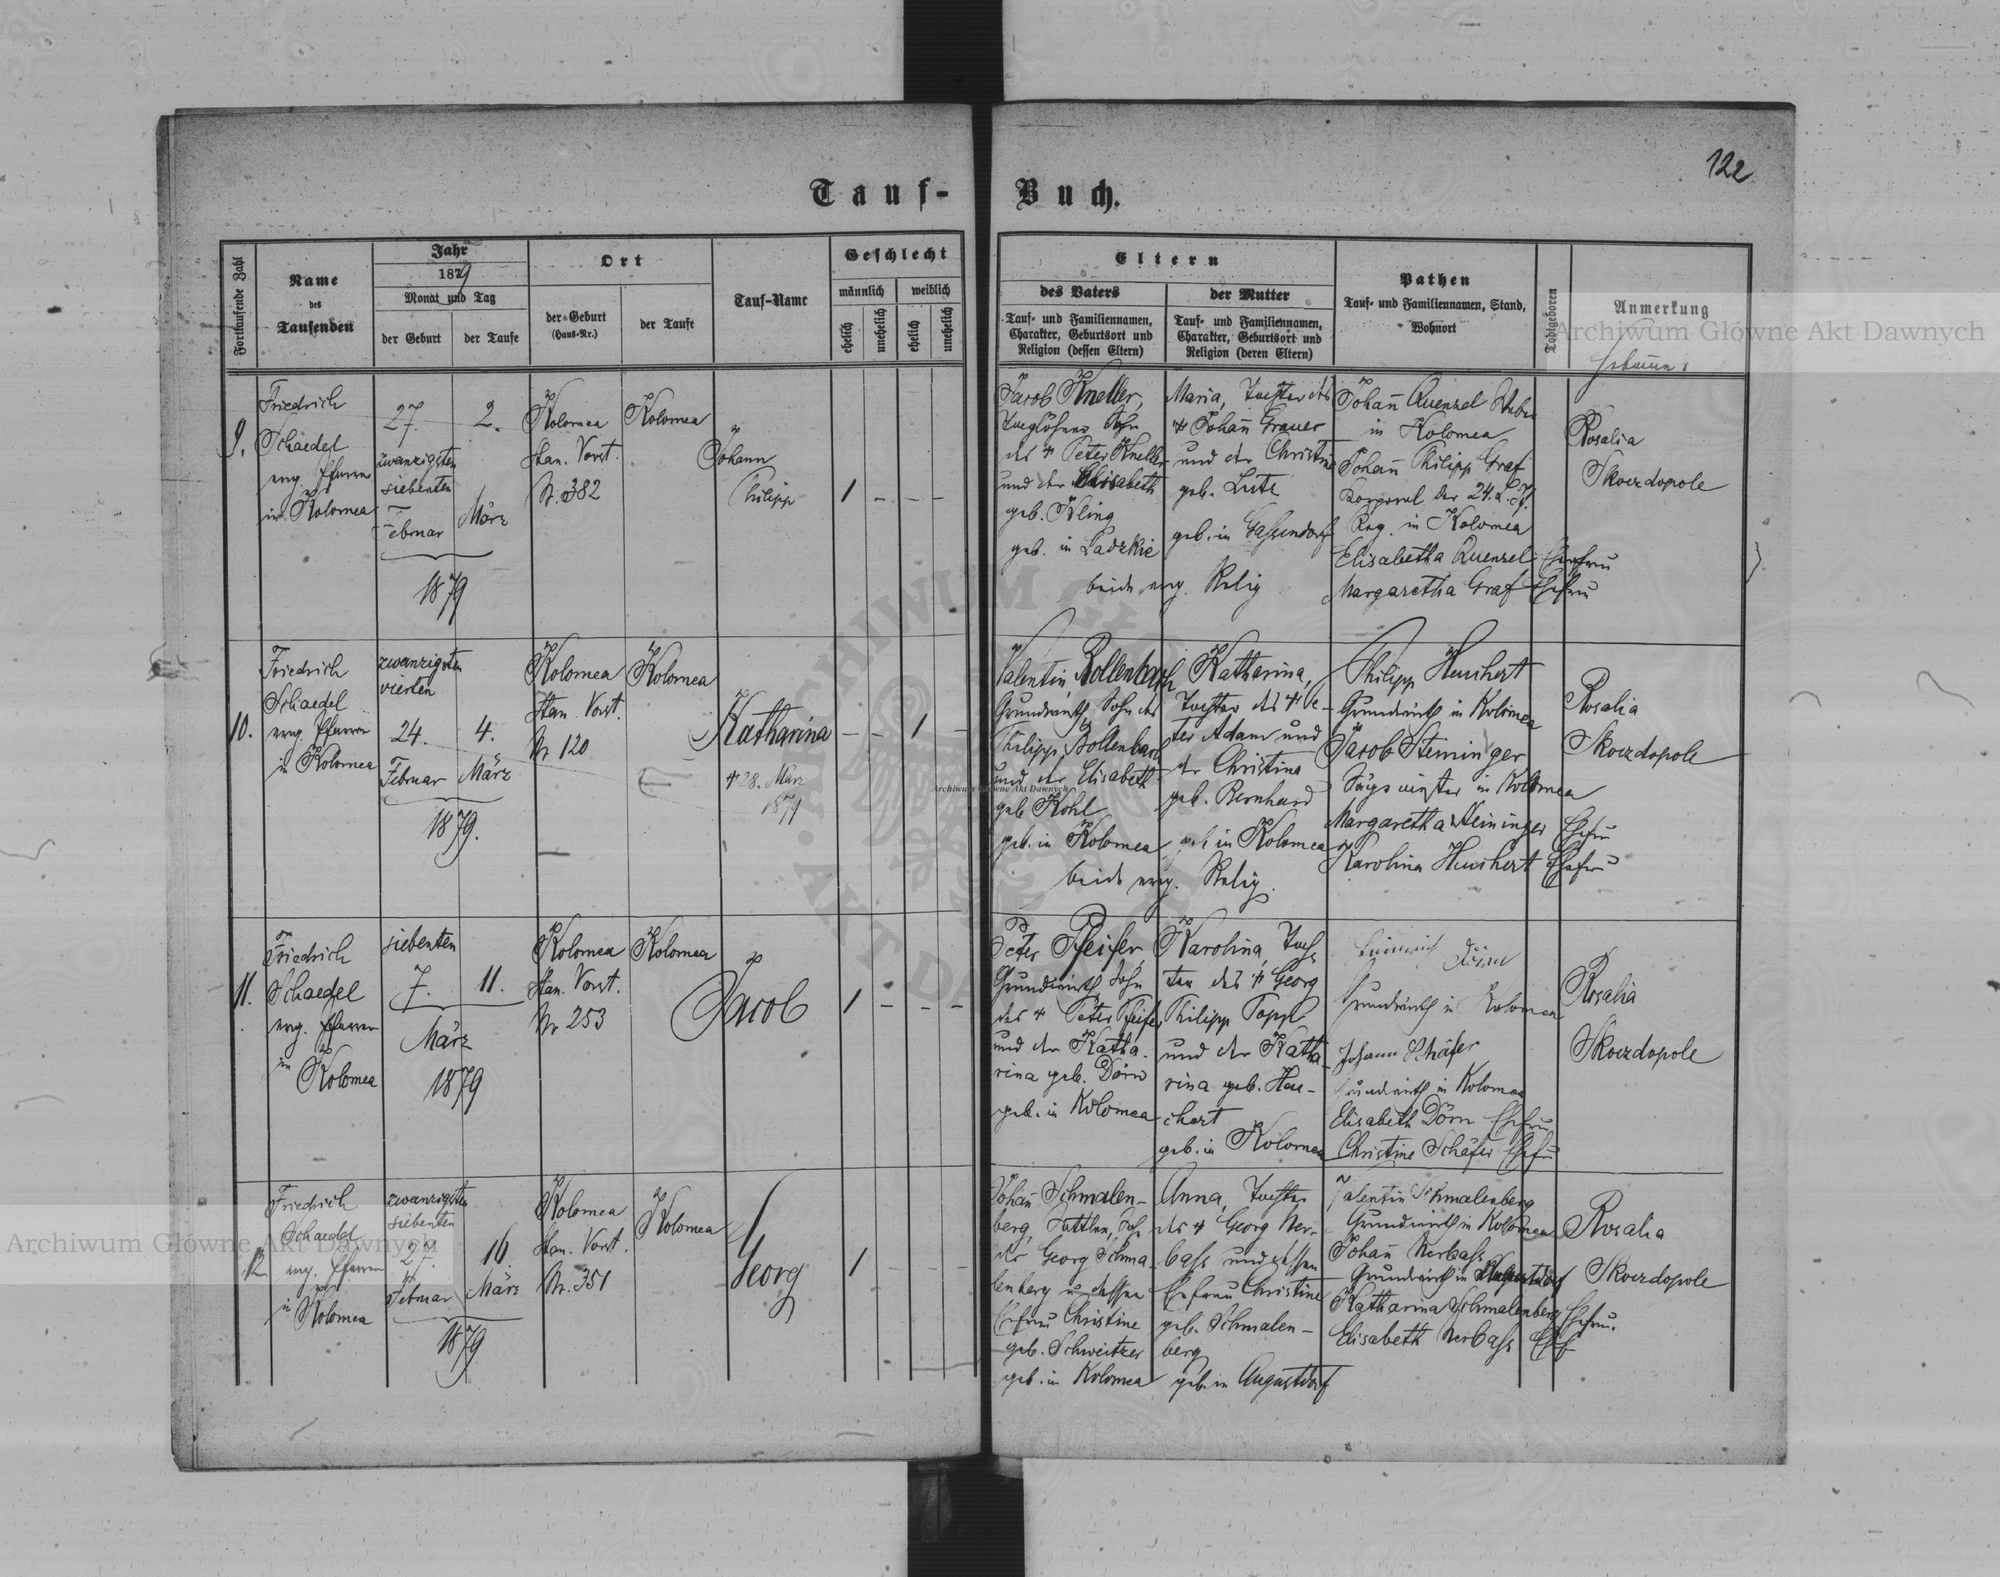 122
Tauf-
Buch.
Fortlaufende Zahl
Name
des
Taufenden
Jahr
1879
Monat und Tag
der Geburt
der Taufe
Ort
der Geburt
(Haus-Nr.)
der Taufe
Tauf-Name
Geschlecht
männlich
weiblich
ehelich
unehelich
ehelich
unehelich
Eltern
des Vaters
Tauf- und Familiennamen,
Charakter, Geburtsort und
Religion (dessen Eltern)
der Mutter
Tauf- und Familiennamen,
Charakter, Geburtsort und
Religion (deren Eltern)
Pathen
Tauf- und Familiennamen, Stand,
Wohnort
Todtgeboren
Anmerkung
9.
Friedrich
Schaedel
evng. Pfarrer
in Kolomea
27.
zwanzigsten
siebenten
Februar
2.
März
1879
Kolomea
Stan. Vorst.
Nr. 382
Kolomea
Johann
Philipp
1 - - -
Jacob Kneller,
Taglöhner Sohn
des † Peter Kneller
und der Elisabeth
geb. Kling
geb. in Ladzkie
Maria, Tochter des
† Johann Grauer
und der Christina
geb. Lutz
geb. in Gassendorf
beide evng. Relig
Johann Quenzel
in Kolomea
Johann Philipp Graf
Korporal der 24.
Reg. in Kolomea
Elisabetha Quenzel Ehefrau
Margaretha Graf Ehefrau
Rosalia
Skoczdopole
10.
Friedrich
Schaedel
evng. Pfarrer
in Kolomea
zwanzigsten
vierten
24.
Februar
4.
März
1879.
Kolomea
Stan. Vorst.
Nr 120
Kolomea
Katharina
† 28. März
1879
- - 1 -
Valentin Bollenbach
Grundwirth, Sohn des
Philipp Bollenbach
und der Elisabeth
geb. Kohl
geb. in Kolomea
Katharina,
Tochter des † Pe-
ter Adam und
der Christina
geb. Bernhard
geb in Kolomea
beide evng. Relig.
Philipp Heuchert
Grundwirth in Kolomea
Jacob Steminger
in Kolomea
Margaretha Steininger Ehefrau
Karolina Heuchert Ehefrau
Rosalia
Skoczdopole
11.
Friedrich
Schaedel
evng. Pfarrer
in
Kolomea
siebenten
7.
11.
März
1879
Kolomea
Stan. Vorst.
Nr 253
Kolomea
Jacob
1 - - -
Peter Pfeifer,
Grundwirth Sohn
des † Peter Pfeifer
und der Katha-
rina geb. Dörn
geb. in Kolomea
Karolina, Toch-
ter des † Georg
Philipp Popp
und der Katha-
rina geb. Heu-
chert
geb. in Kolomea
Heinrich Dörn
Grundwirth in Kolomea
Johann Schäfer
Grundwirth in Kolomea
Elisabeth Dörn Ehefrau
Christine Schäfer Ehefr
Rosalia
Skoczdopole
12.
Friedrich
Schaedel
evng. Pfarrer
in
Kolomea
zwanzigsten
siebenten
27.
Februar
16.
März
1879
Kolomea
Stan. Vorst.
Nr. 351
Kolomea
Georg
1 - - -
Johann Schmalen-
berg, Sattler, Sohn
des Georg Schma-
lenberg u. dessen
Ehefrau Christine
geb. Schweitzer
geb. in Kolomea
Anna, Tochter
des † Georg Ner-
bass und dessen
Ehefrau Christine
geb. Schmalen-
berg
geb. in Augustdorf
Valentin Schmalenberg
Grundwirth in Kolomea
Johann Nerbass
Grundwirth in Augustdorf
Katharina Schmalenberg Ehefrau.
Elisabeth Nerbass Ehf
Rosalia
Skoczdopole
Archiwum Główne Akt Dawnych
Archiwum Główne Akt Dawnych
Archiwum Główne Akt Dawnych